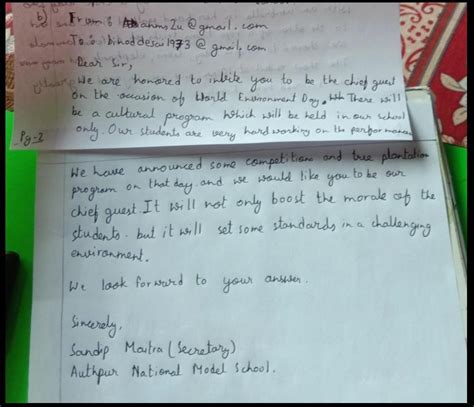 b) From: ahans2u@gmail.com
To: binoddesai1973@gmail.com
Dear Sir,
We are honored to invite you to be the chief guest
on the occasion of World Environment Day. There will
be a cultural program which will be held in our school
only. Our students are very hard working on the performance
Pg-2
We have announced some competitions and tree plantation
program on that day. and we would like you to be our
chief guest. It will not only boost the morale of the
students. but it will set some standards in a challenging
environment.
We look forward to your answer.
Sincerely,
Sandip Maitra (Secretary)
Authpur National Model School.